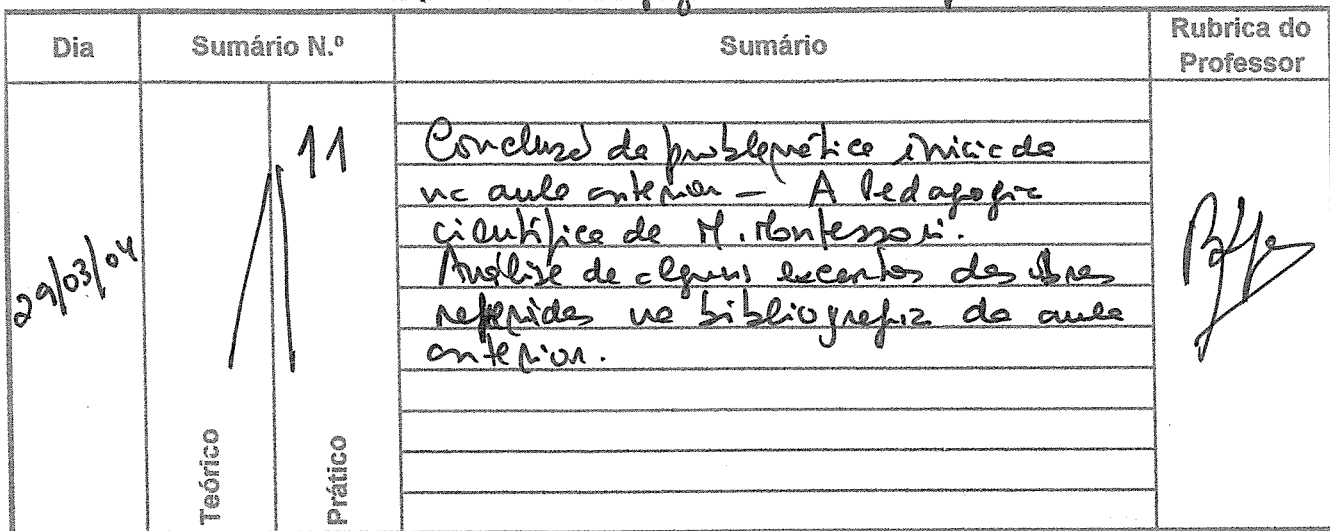 Dia
Sumário N.º
Sumário
Rubrica do
Professor
29/03/04
11
Conclusão da problemática iniciada
na aula anterior – A Pedagogia
científica de M. Montessori.
Análise de alguns excertos das obras
referidas na bibliografia da aula
anterior.
Teórico
Prático